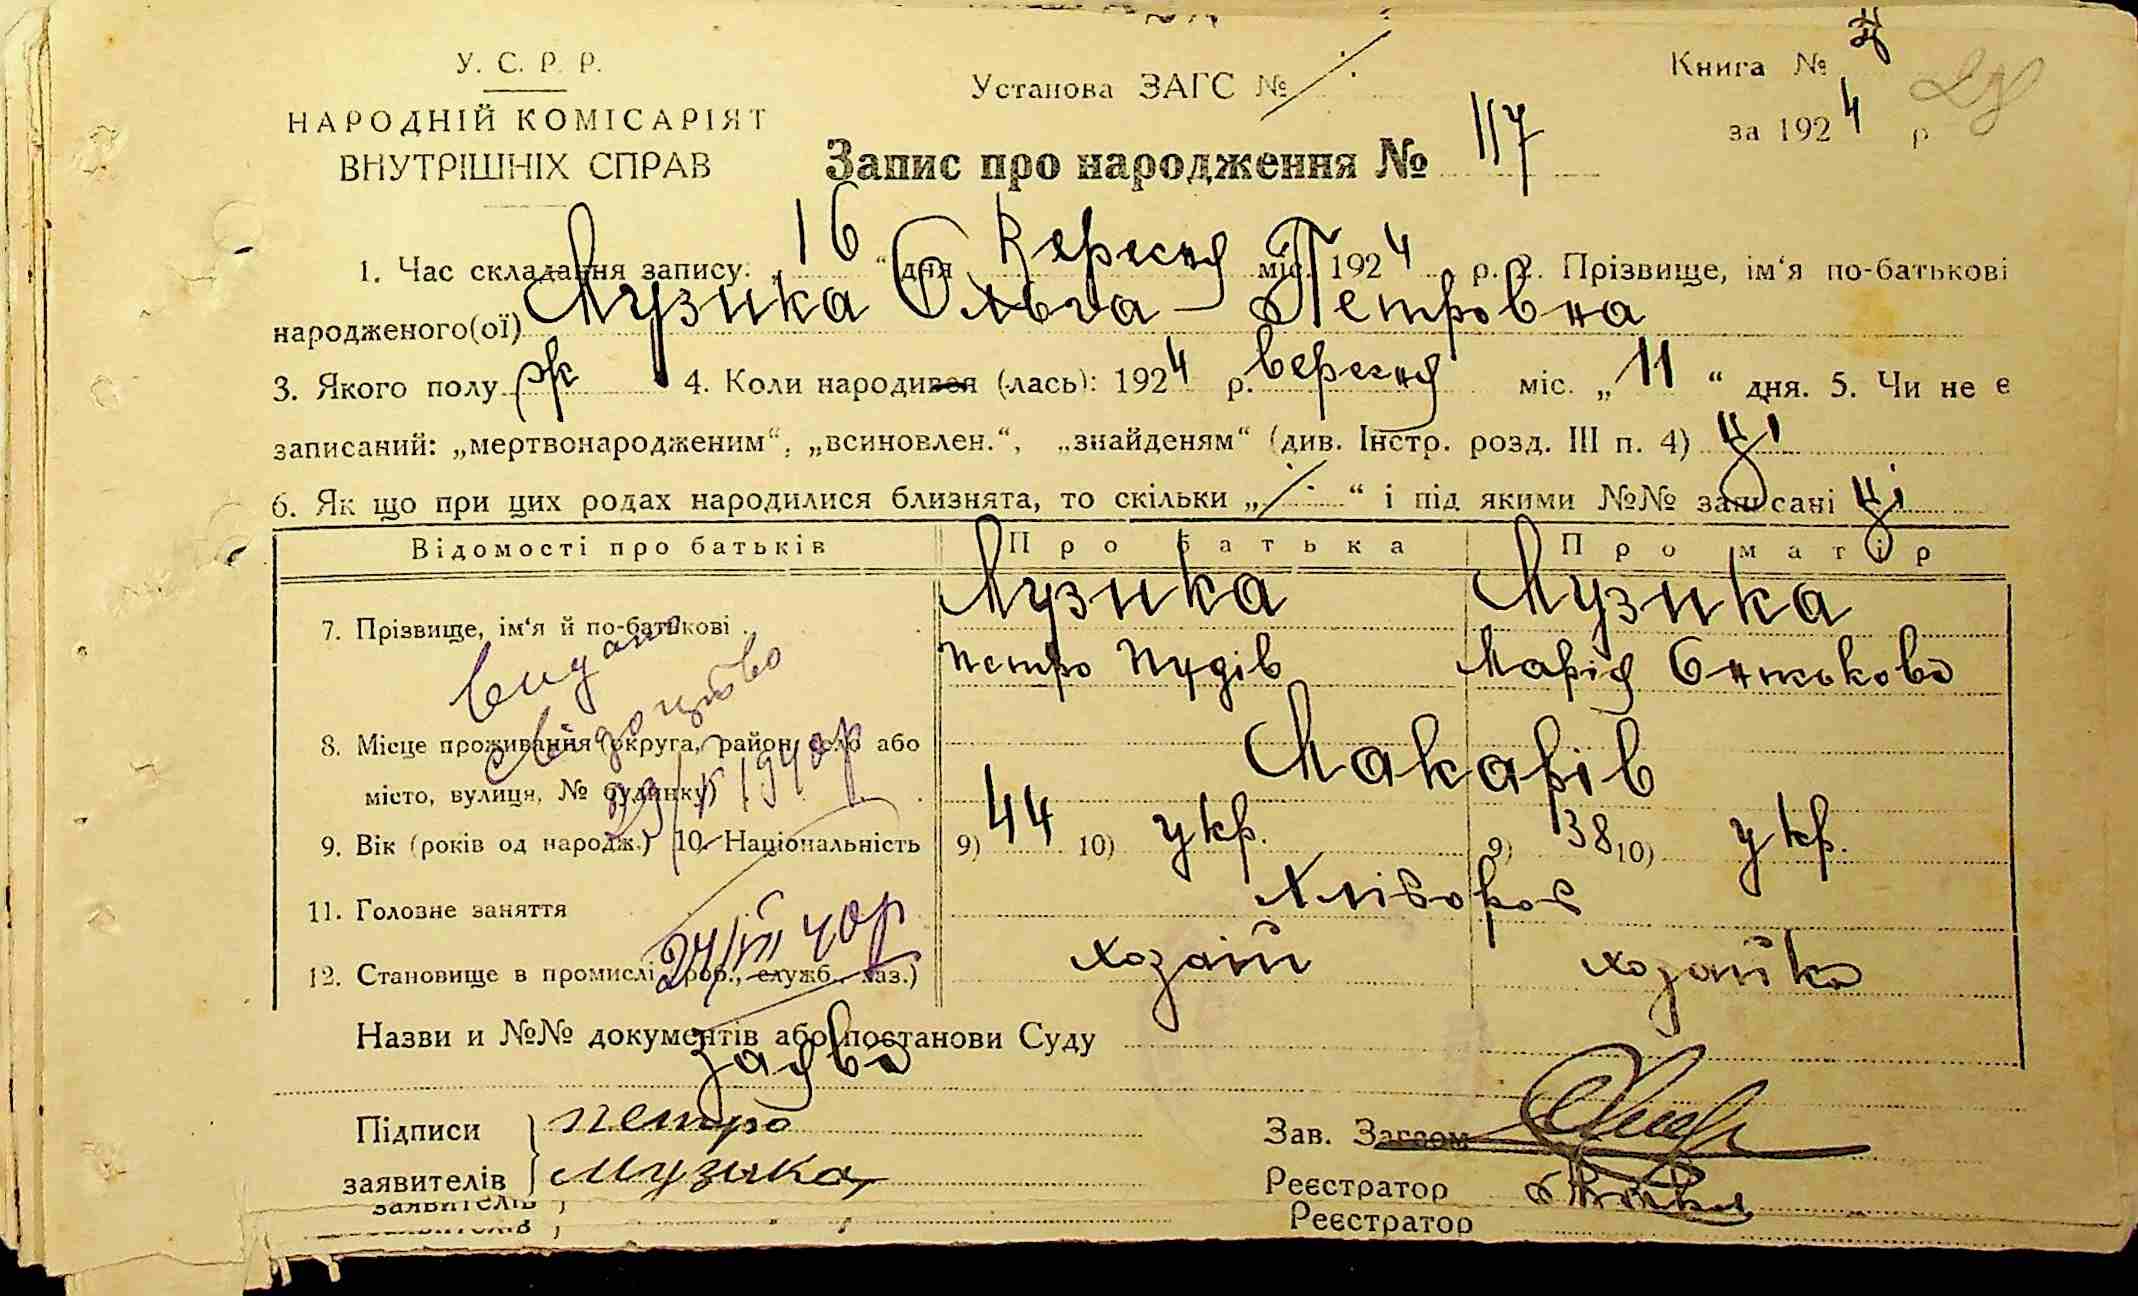 У. С. Р. Р.
НАРОДНІЙ КОМІСАРІЯТ
ВНУТРІШНІХ СПРАВ
Установа ЗАГС №
Книга №
за 1924 р
Запис про народження № 117
1. Час складання запису: 16 " дня Вересня міс. 1924 р. 2. Прізвище, ім'я по-батькові
народженого(ої) Музика Ольга Петровна
3. Якого полу ж 4. Коли народився (-лась): 1924 р. вересня міс. „ 11 " дня. 5. Чи не є
записаний: „мертвонародженим", „всиновлен.", „знайденям" (див. Інстр. розд. III п. 4) ні
6. Як що при цих родах народилися близнята, то скільки „ " і під якими №№ записані ні
Відомості про батьків Про батька Про матір
7. Прізвище, ім'я й по-батькові Музика Музика
Петро Марія
видано
свідоцтво
8. Місце проживання (округа, район, село або
місто, вулиця, № будинку) Макарів
1940р
9. Вік (років од народж.) 10. Національність 9) 44 10) укр. 9) 38 10) укр.
11. Головне заняття Хлібороб
12. Становище в промислі (роб., служб., хаз.) хозаїн хозайка
24/VII 40р
Назви и №№ документів або постанови Суду
заява
Підписи
заявителів
Петро
Музика
Зав. Загсом
Реєстратор
заявителів
Реєстратор